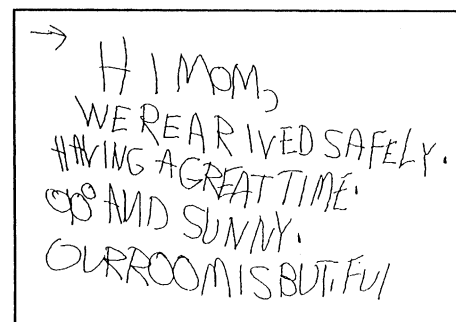 HI MOM,
WE REARIVED SAFELY.
HAVING A GREAT TIME.
80° AND SUNNY.
OUR ROOM IS BUTIFUl